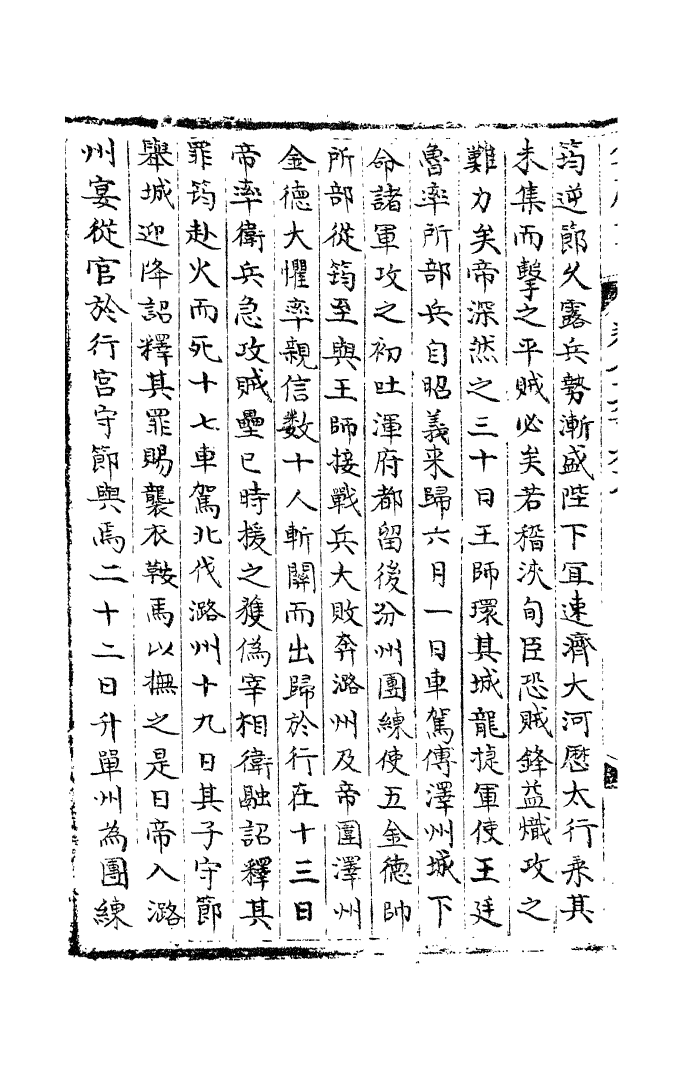 筠逆節久露兵勢漸盛陛下宜速濟大河歷太行乘其
未集而擊之平賊必矣若稽浹旬臣恐賊鋒益熾攻之
難力矣帝深然之三十日王師環其城龍捷軍使王廷
魯率所部兵自昭義来歸六月一日車駕傅澤州城下
命諸軍攻之初吐渾府都留後汾州團練使五金德帥
所部從筠至與王師接戰兵大敗奔潞州及帝圍澤州
金德大懼率親信数十人斬關而出歸於行在十三日
帝率衛兵急攻賊壘巳時援之獲僞宰相衛融詔釋其
罪筠赴火而死十七車駕北伐潞州十九日其子守節
舉城迎降詔釋其罪賜襲衣鞍馬以撫之是日帝入潞
州宴從官於行宮守節與焉二十二日升單州為團練